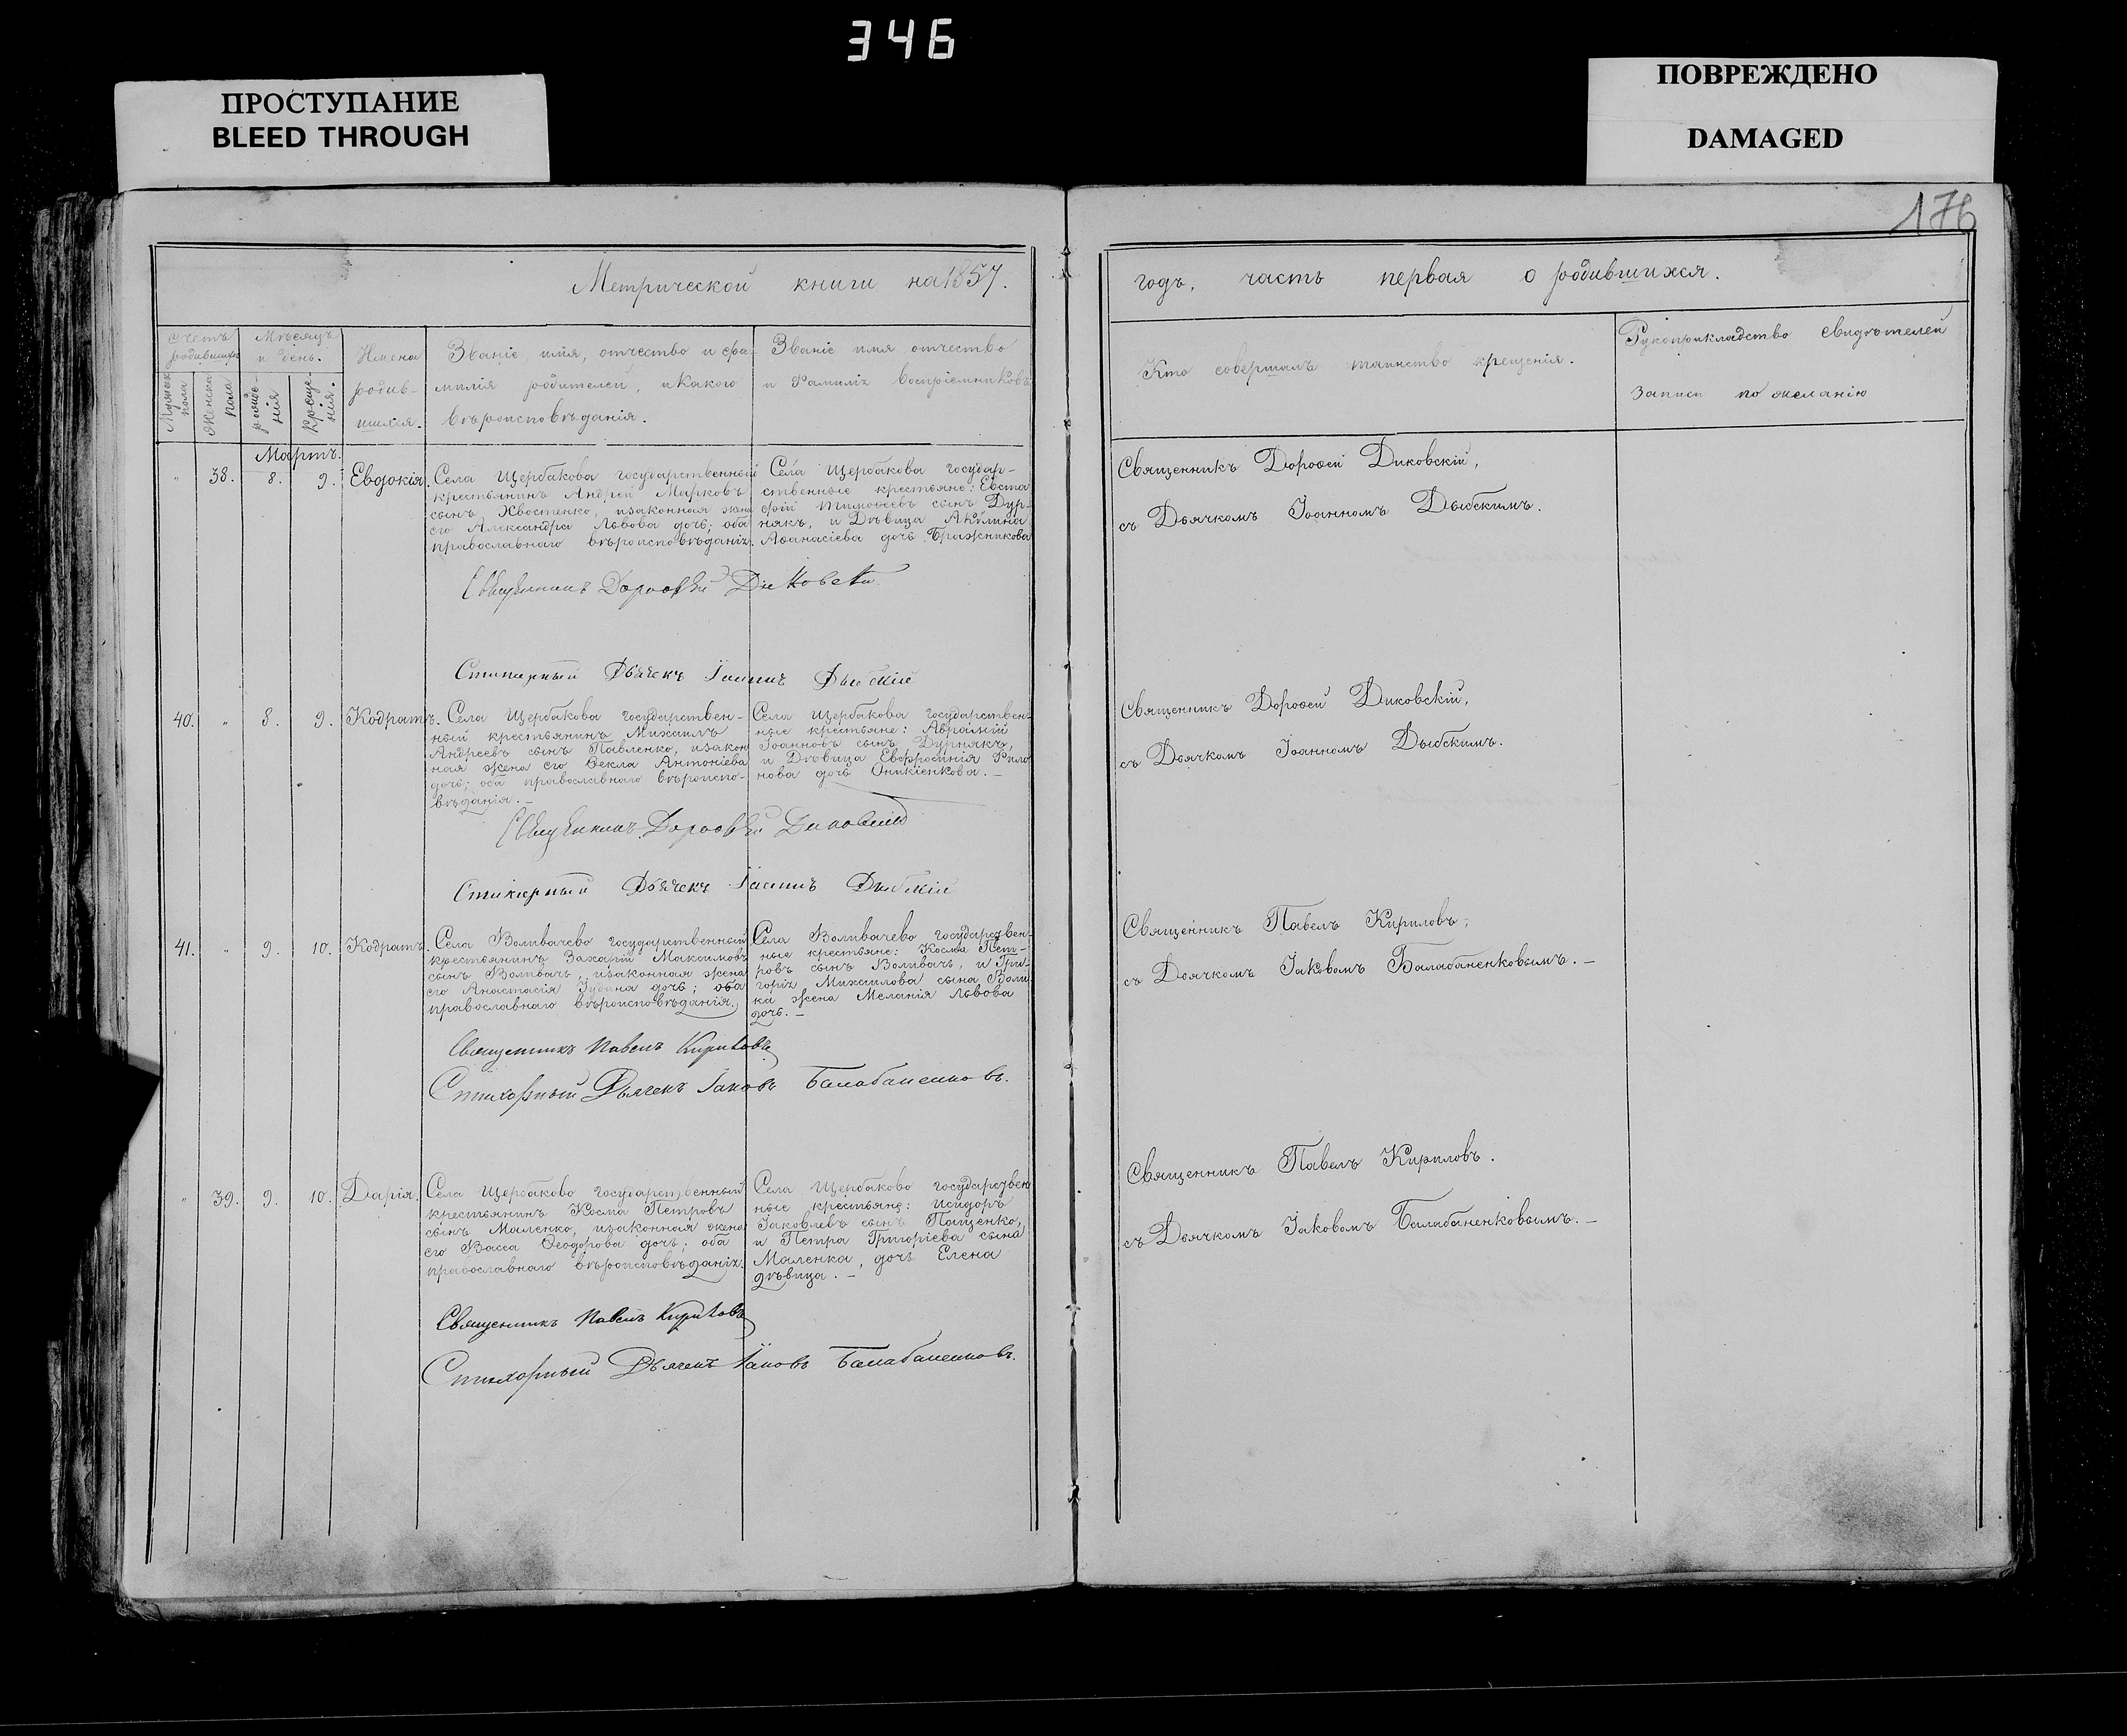 346
ПРОСТУПАНИЕ
BLEED THROUGH
ПОВРЕЖДЕНО
DAMAGED
176
Метрической книги на 1857.
Счетъ родившихся
Мѣсяцъ и день.
Мужеска пола
Женска пола
рожде-
нія
креще-
нія.
Имена
родив-
шихся.
Званіе, имя, отчество и фа-
милія родителей, и какого
вѣроисповѣданія.
Званіе имя отчество
и Фамилія воспріемниковъ
Мартъ.
" 38. 8. 9. Евдокія.
Села Щербакова государственный
крестьянинъ Андрей Марковъ
сынъ Хвостенко, изаконная жена
его Александра Львова дочь; оба
православнаго вѣроисповѣданія.
Села Щербакова государ-
ственные крестьяне: Евста
фій Тимофеевъ сынъ Дур-
някъ, и Дѣвица Акилина
Аѳанасіева дочь Бражникова
Священникъ Дороѳей Диковскій
Стихарный Дьячекъ Іоаннъ Дыбскій
40. " 8. 9. Кодратъ.
Села Щербакова государствен-
ный крестьянинъ Михаилъ
Андреевъ сынъ Павленко, изакон
ная жена его Ѳекла Антоніева
дочь; оба православнаго вѣроиспо-
вѣданія. —
Села Щербакова государствен-
ные крестьяне: Аврамій
Іоанновъ сынъ Дурнякъ,
и Дѣвица Евфросинія Фило
нова дочь Оникіенкова. —
Священникъ Дороѳей Диковскій
Стихарный Дьячекъ Іоаннъ Дыбскій
41. " 9. 10. Кодратъ.
Села Воливачево государственный
крестьянинъ Захарій Максимовъ
сынъ Воливачь, изаконная жена
его Анастасія дочь; оба
православнаго вѣроисповѣданія.
Села Воливачево государствен-
ные крестьяне: Косма Пет-
ровъ сынъ Воливачь, и Гри-
горія Михаилова сына
жена Меланія Львова
дочь. —
Священникъ Павелъ Кириловъ
Стихарный Дьячекъ Іаковъ Балабаненковъ.
" 39. 9. 10. Дарія.
Села Щербаково государственный
крестьянинъ Косма Петровъ
сынъ Маленко, изаконная жена
его Васса Ѳеодорова дочь; оба
православнаго вѣроисповѣданія.
Села Щербаково государствен
ные крестьяне: Исидоръ
Іаковлевъ сынъ Пащенко,
и Петра Григоріева сына
Маленка, дочь Елена
дѣвица. —
Священникъ Павелъ Кириловъ
Стихарный Дьячекъ Іаковъ Балабаненковъ.
годъ, часть первая о родившихся.
Кто совершалъ таинство крещенія.
Рукоприкладство свидѣтелей
записи по желанію
Священникъ Дороѳей Диковскій,
съ Дьячкомъ Іоанномъ Дыбскимъ.
Священникъ Дороѳей Диковскій,
съ Дьячкомъ Іоанномъ Дыбскимъ.
Священникъ Павелъ Кириловъ,
съ Дьячкомъ Іаковомъ Балабаненковымъ. —
Священникъ Павелъ Кириловъ.
съ Дьячкомъ Іаковомъ Балабаненковымъ. —